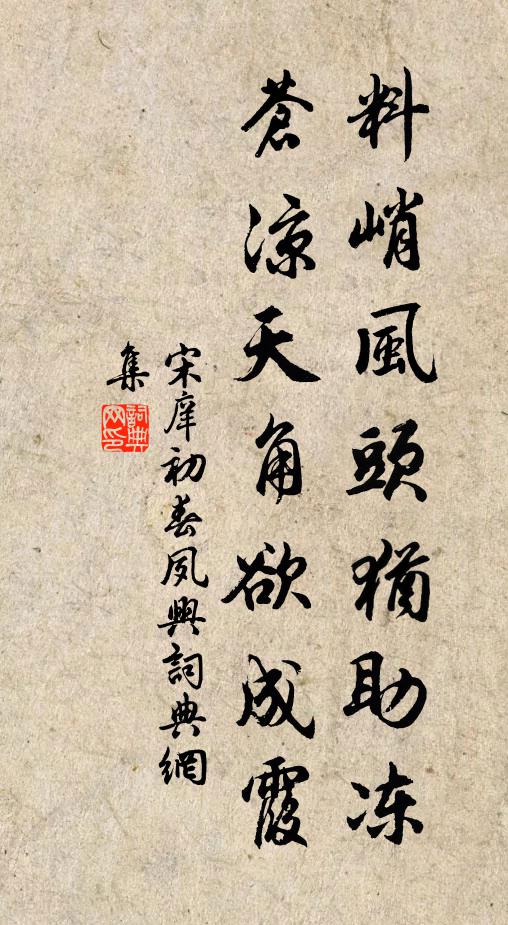 料峭風頭猶助冻
蒼涼天角欲成霞
宋庠初春夙興詞典網
集
詞典網印